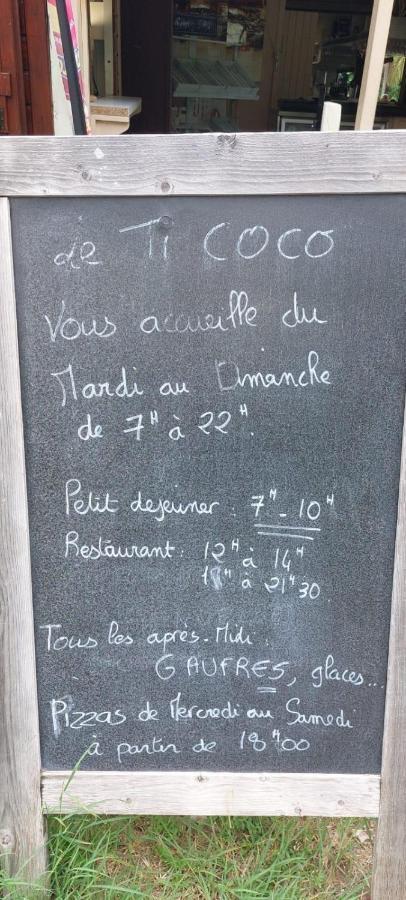 Le Ti COCO
Vous accueille du
Mardi au Dimanche
de 7H à 22H.
Petit dejeuner : 7H - 10H
Restaurant : 12H à 14H
à 21H30.
Tous les après-Midi :
GAUFRES, glaces...
Pizzas de Mercredi au Samedi
à partir de 18H00